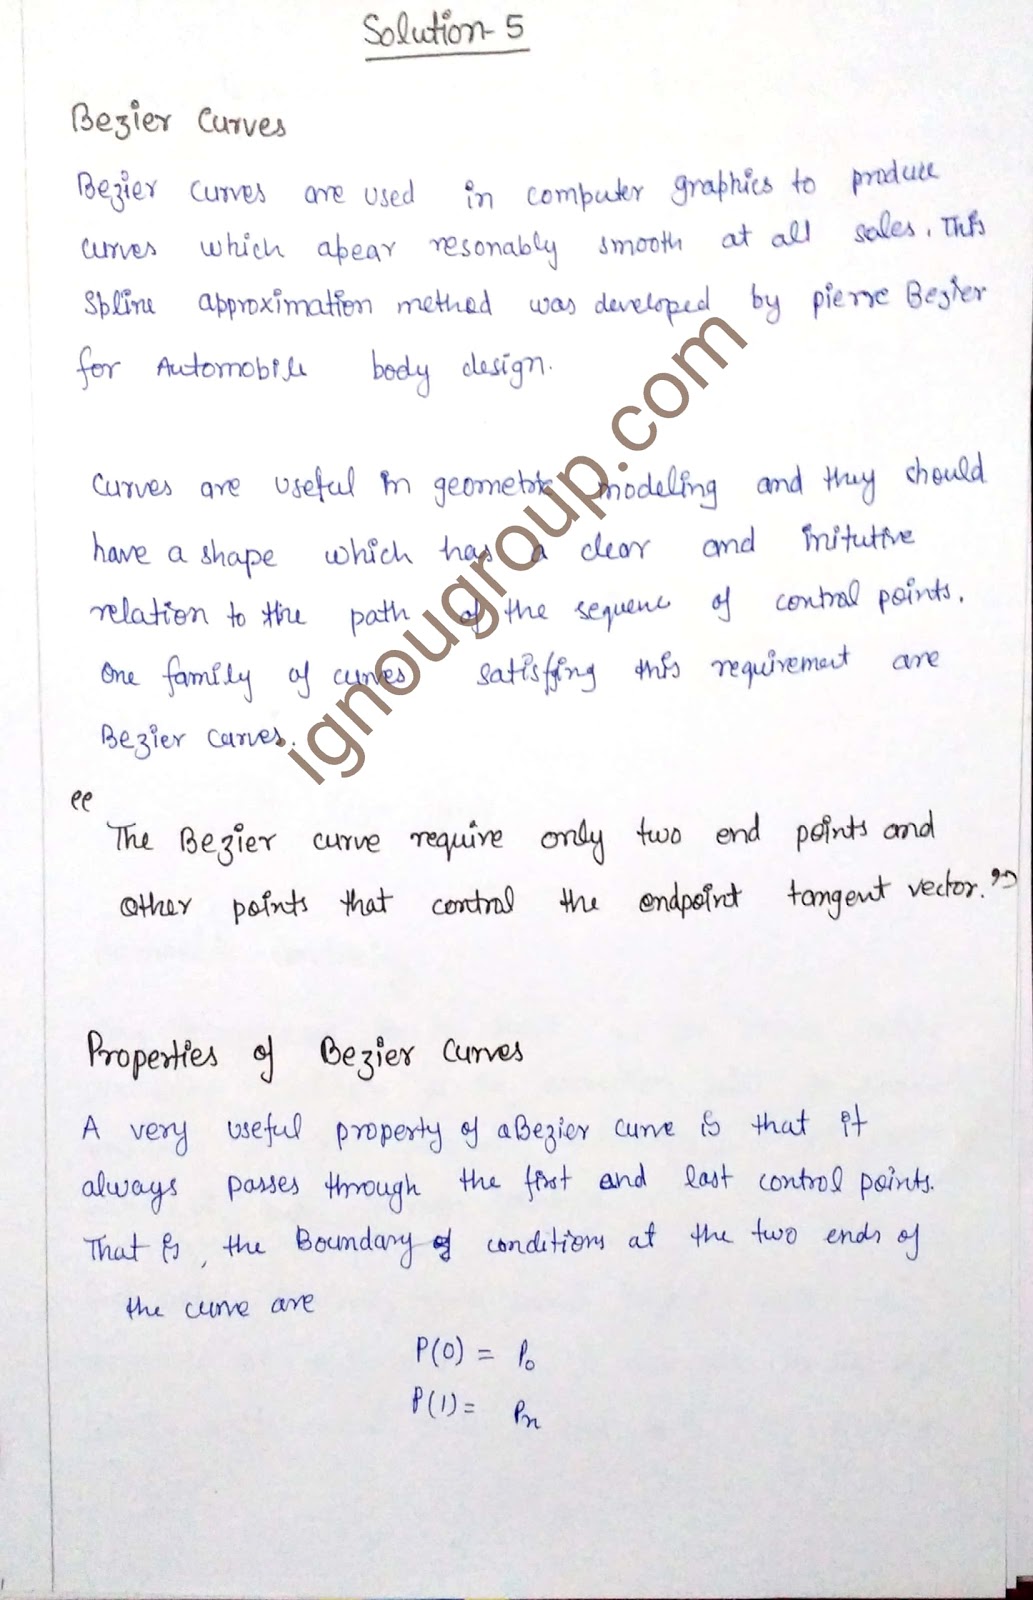 Solution-5
Bezier Curves
Bezier curves are used in computer graphics to produce
curves which apear resonably smooth at all sales. This
Spline approximation method was developed by pierre Bezier
for Automobile body design.
Curves are useful in geometric modeling and they should
have a shape which has a clear and initutive
relation to the path of the sequence of control points.
One family of curves satisfing this requirement are
Bezier curves.
"The Bezier curve require only two end points and
other points that control the endpoint tangent vector."
Properties of Bezier Curves
A very useful property of a Bezier curve is that it
always passes through the first and last control points.
That is, the Boundary of conditions at the two ends of
the curve are
P(0) = P₀
P(1) = Pₙ
ignougroup.com